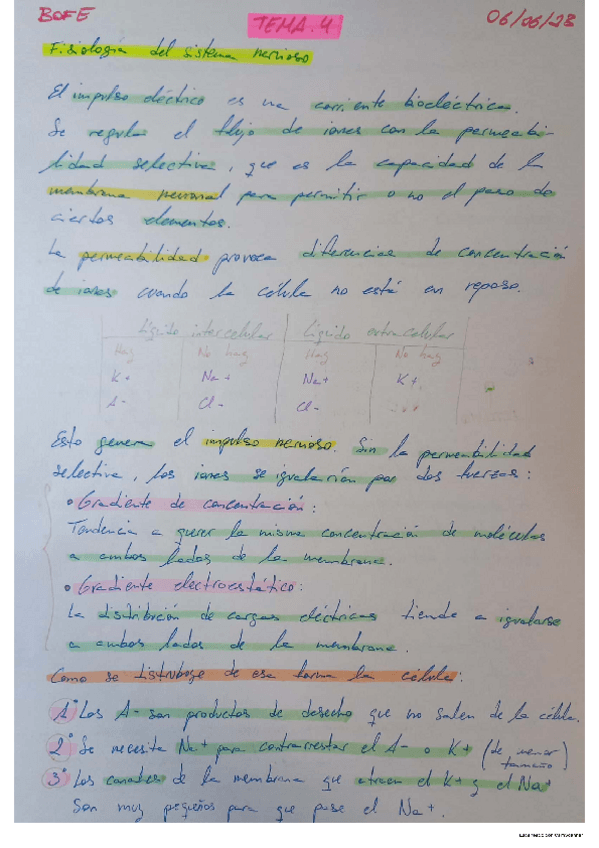 BOFE TEMA. 4 06/06/23
Fisiología del sistema nervioso
El impulso eléctrico es una corriente bioeléctrica.
Se regula el flujo de iones con la permeabi-
lidad selectiva, que es la capacidad de la
membrana neuronal para permitir o no el paso de
ciertos elementos.
La permeabilidad provoca diferencias de concentración
de iones cuando la célula no está en reposo.
Líquido intercelular Líquido extracelular
Hay No hay Hay No hay
K+ Na+ Na+ K+
A- Cl- Cl-
Esto genera el impulso nervioso. Sin la permeabilidad
selectiva, los iones se igualarían por dos fuerzas:
• Gradiente de concentración:
Tendencia a querer la misma concentración de moléculas
a ambos lados de la membrana.
• Gradiente electroestático:
La distribución de cargas eléctricas tiende a igualarse
a ambos lados de la membrana.
Como se distruboye de esa forma la célula:
1º Los A- son productos de desecho que no salen de la célula.
2º Se necesita Na+ para contrarrestar el A- o K+ (de menor tamaño)
3º Los canales de la membrana que atraen el K+ y el Na+
son muy pequeños para que pase el Na+.